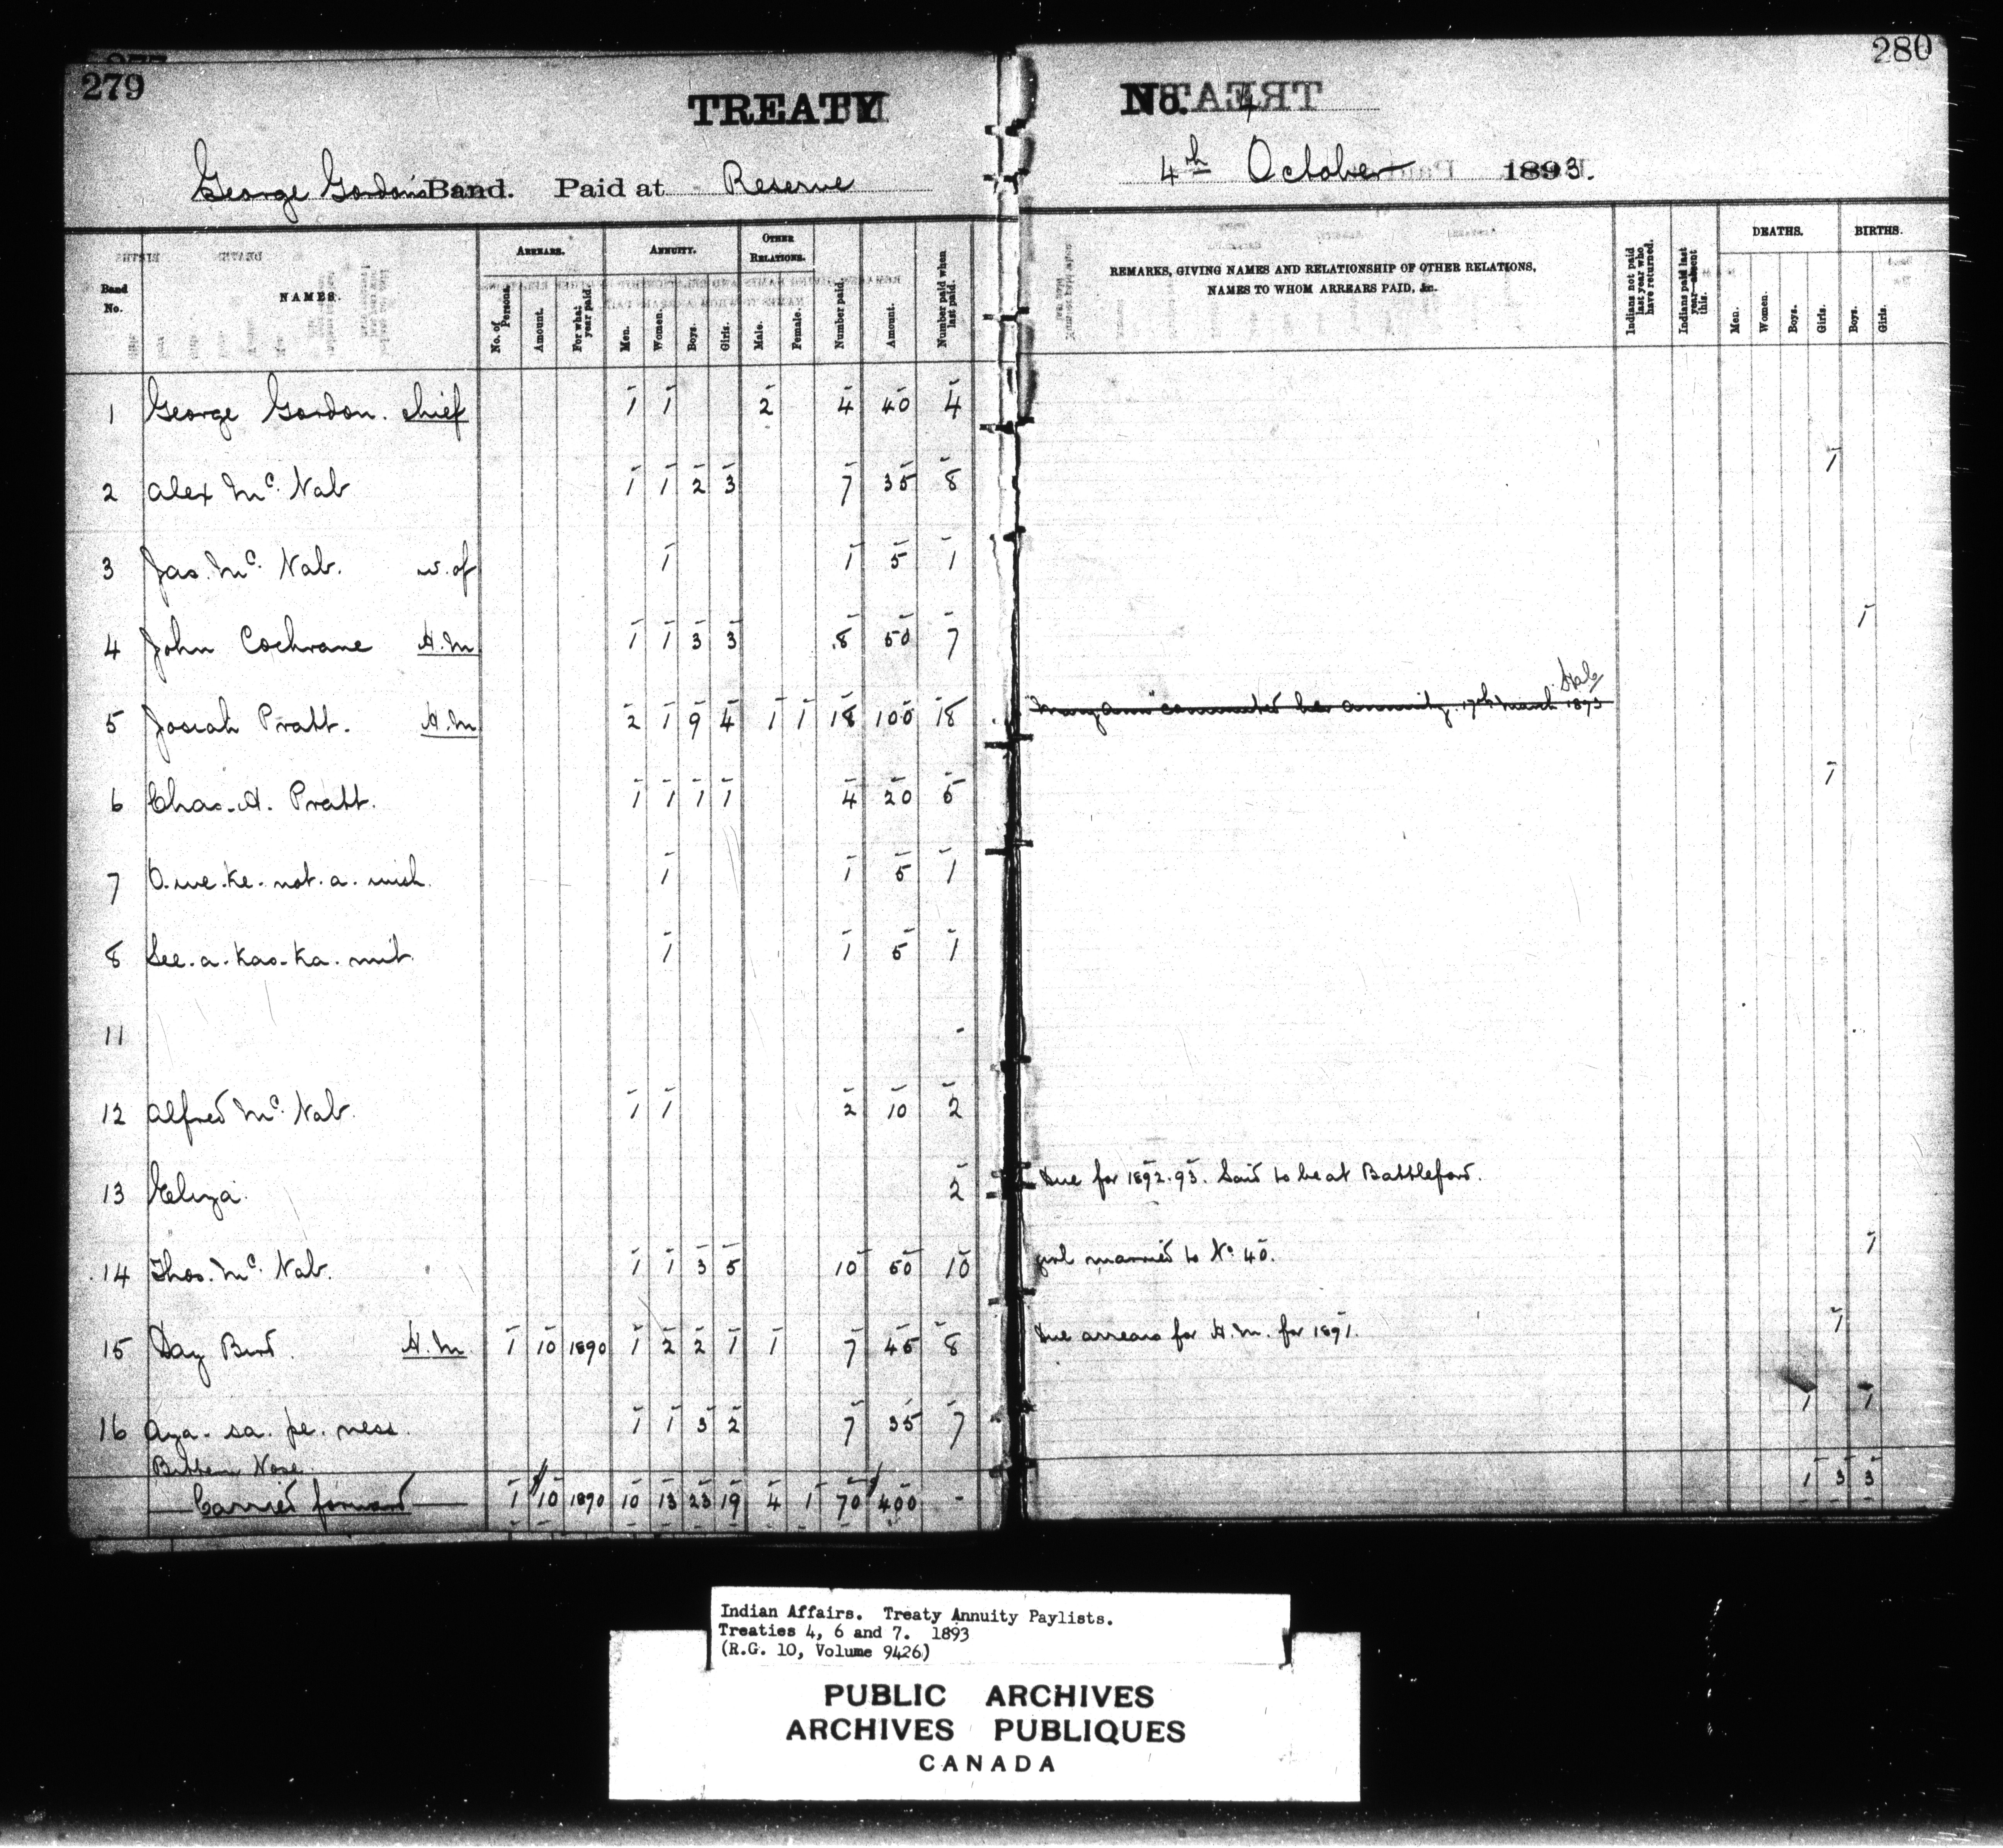 279
280
TREATY
No. 4
George Gordon's Band. Paid at Reserve
4th October 1893.
Band No.
NAMES.
ARREARS.
No. of Persons.
Amount.
For what year paid.
ANNUITY.
Men.
Women.
Boys.
Girls.
OTHER RELATIONS.
Male.
Female.
Number paid.
Amount.
Number paid when last paid.
REMARKS, GIVING NAMES AND RELATIONSHIP OF OTHER RELATIONS,
NAMES TO WHOM ARREARS PAID, &c.
Indians not paid last year who have returned.
Indians paid last year—absent this.
DEATHS.
Men.
Women.
Boys.
Girls.
BIRTHS.
Boys.
Girls.
1 George Gordon. Chief 1 1 2 4 40 4
2 Alex Mc. Nab 1 1 2 3 7 35 8 1
3 Jas. Mc. Nab. w. of 1 1 5 1
4 John Cochrane H.M 1 1 3 3 8 50 7 1
5 Josiah Pratt. H.M 2 1 9 4 1 1 18 100 18 Mary Ann commuted her annuity. 17th March 1893
6 Chas. A. Pratt. 1 1 1 1 4 20 5 1
7 O. we. ke. not. a. wish. 1 1 5 1
8 See. a. kas. ka. mit. 1 1 5 1
11 -
12 Alfred Mc. Nab. 1 1 2 10 2
13 Eliza. 2 Due for 1892.93. Said to be at Battleford.
14 Thos. Mc. Nab. 1 1 3 5 10 50 10 girl married to No 40. 1
15 Day Bird. H.M. 1 10 1890 1 2 2 1 1 7 45 8 Due arrears for H.M. for 1891. 1
16 Aya. sa. pe. ness. 1 1 3 2 7 35 7 1 1
Bitten Nose.
Carried forward 1 $10 1890 10 13 23 19 4 1 70 $400 - 1 3 3
Indian Affairs. Treaty Annuity Paylists.
Treaties 4, 6 and 7. 1893
(R.G. 10, Volume 9426)
PUBLIC ARCHIVES
ARCHIVES PUBLIQUES
CANADA